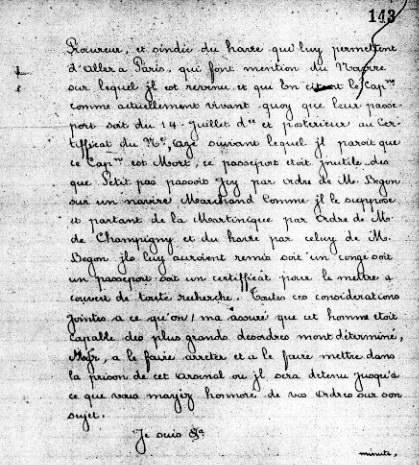 143
Procureur, et sindic du havre qui luy permettent
d'aller a Paris, qui font mention du Navire
sur lequel jl est revenu et qui en citent le Capne
comme actuellement vivant quoy que leur passe-
port soit du 14 Juillet dr et posterieur au Cer-
tifficat du Sr. Cazé suivant lequel jl paroit que
ce Capne est Mort, ce passeport etoit jnutile des
que Petit pas passoit Jcy par ordre de M. Begon
sur un navire Marchand Comme jl le suppose
et partant de la Martinique par Ordre de M.
de Champigny et du havre par celuy de M.
Begon jls luy auroient remis soit un congé soit
un passeport soit un certifficat pour le mettre a
couvert de toute recherche. Toutes ces considerations
jointes a ce qu'on m'a assuré que cet homme etoit
capable des plus grands desordres m'ont determiné,
Mgr, a le faire arreter et a le faire mettre dans
la prison de cet arsenal ou jl sera detenu jusqu'a
ce que vous m'ayiez honnoré de vos ordres sur son
sujet.
Je suis &c
minute,